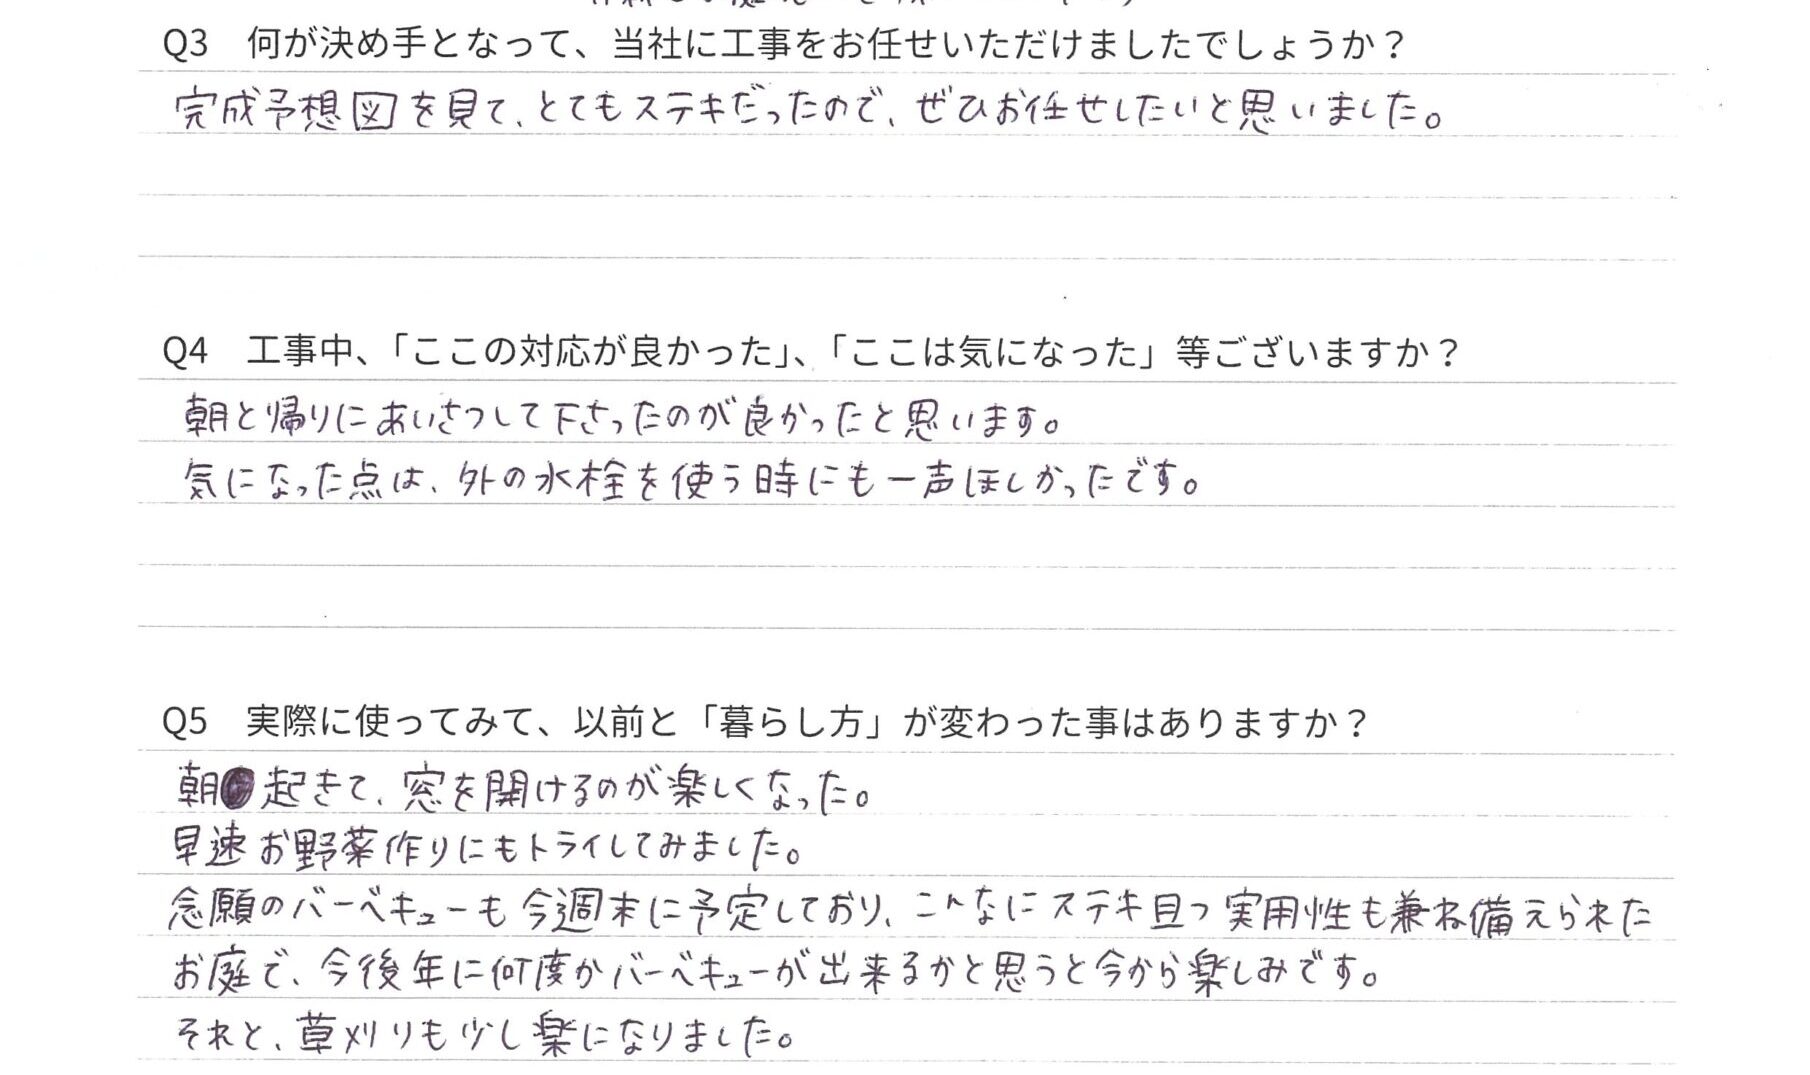 Q3 何が決め手となって、当社に工事をお任せいただけましたでしょうか？
完成予想図を見て、とてもステキだったので、ぜひお任せしたいと思いました。
Q4 工事中、「ここの対応が良かった」、「ここは気になった」等ございますか？
朝と帰りにあいさつして下さったのが良かったと思います。
気になった点は、外の水栓を使う時にも一声ほしかったです。
Q5 実際に使ってみて、以前と「暮らし方」が変わった事はありますか？
朝起きて、窓を開けるのが楽しくなった。
早速お野菜作りにもトライしてみました。
念願のバーベキューも今週末に予定しており、こんなにステキ且つ実用性も兼ね備えられた
お庭で、今後年に何度かバーベキューが出来るかと思うと今から楽しみです。
それと、草刈りも少し楽になりました。